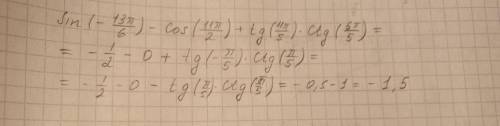 Sin(-13π/6) - cos(11π/2) + tg(11π/5) · ctg(6π/5) =
= -1/2 - 0 + tg(-π/5) · ctg(π/5) =
= -1/2 - 0 - tg(π/5) · ctg(π/5) = -0,5-1 = -1,5